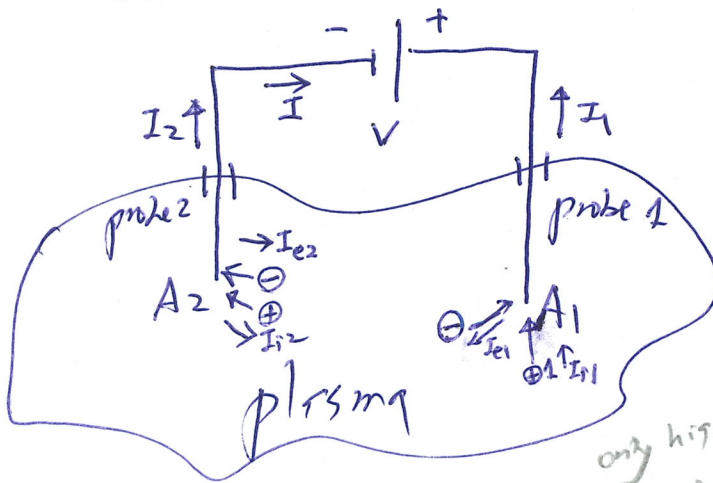 - +
I2 I V I1
probe2 probe 1
Ie2
A2 A1
Ii2 Ie1 Ii1
plasma
only hig